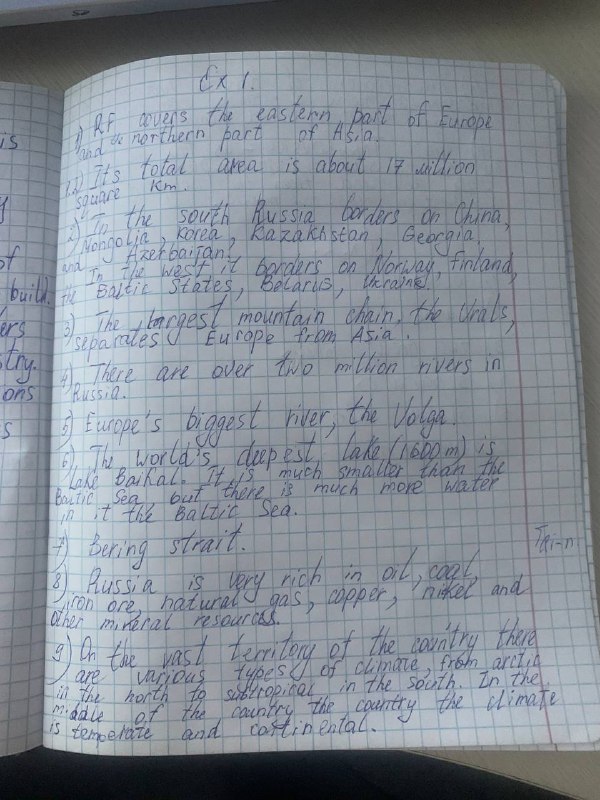 is
y
of
build.
ers
stry.
ons
s
Ex 1.
1) RF covers the eastern part of Europe
and the northern part of Asia.
1.2) Its total area is about 17 million
square km.
2) In the south Russia borders on China,
Mongolia, Korea, Kazakhstan, Georgia,
and Azerbaijan.
In the west it borders on Norway, Finland,
the Baltic States, Belarus, Ukraine
3) The largest mountain chain, the Urals,
separates Europe from Asia.
4) There are over two million rivers in
Russia.
5) Europe's biggest river, the Volga.
6) The world's deepest lake (1600 m) is
Lake Baikal. It is much smaller than the
Baltic Sea, but there is much more water
in it the Baltic Sea.
7) Bering strait.
8) Russia is very rich in oil, coal,
iron ore, natural gas, copper, nikel and
other mineral resources.
9) On the vast territory of the country there
are various types of climate, from arctic
in the north to subtropical in the south. In the
middle of the country the country the climate
is temperate and continental.